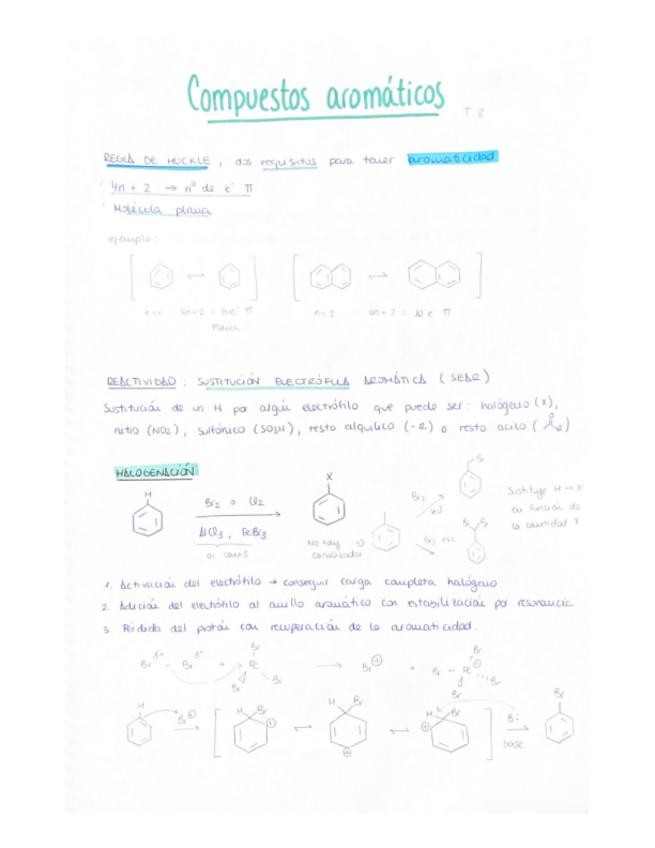 Compuestos aromáticos T 8
REGLA DE HÜCKLE, dos requisitos para tener aromaticidad
· 4n + 2 → nº de e⁻ π
· Molécula plana
ejemplo:
n=1 4n+2 = 6e⁻ π n=2 4n+2 = 10 e⁻ π
Plana
REACTIVIDAD: SUSTITUCIÓN ELECTRÓFILA AROMÁTICA (SEAR)
Sustitución de un H por algún electrófilo que puede ser: halógeno (X),
nitro (NO2), sulfónico (SO3H), resto alquílico (-R) o resto acilo ( R)
HALOGENACIÓN
H X Br
Br2 o Cl2 Br2 Sustituye H → X
hν en función de
AlCl3, FeBr3 Br Br la cantidad X
ac. Lewis No hay ⇒ Br2 exc.
catalizador
1. Activación del electrófilo → conseguir carga completa halógeno
2. Adición del electrófilo al anillo aromático con estabilización por resonancia
3. Pérdida del protón con recuperación de la aromaticidad.
Br δ+ — Br δ- + Br Fe Br Br → Br⊕ + Br — Fe⊖ Br Br Br
H Br⊕ H Br ⊕ H Br ⊕ H Br ⊕ B: Br
base